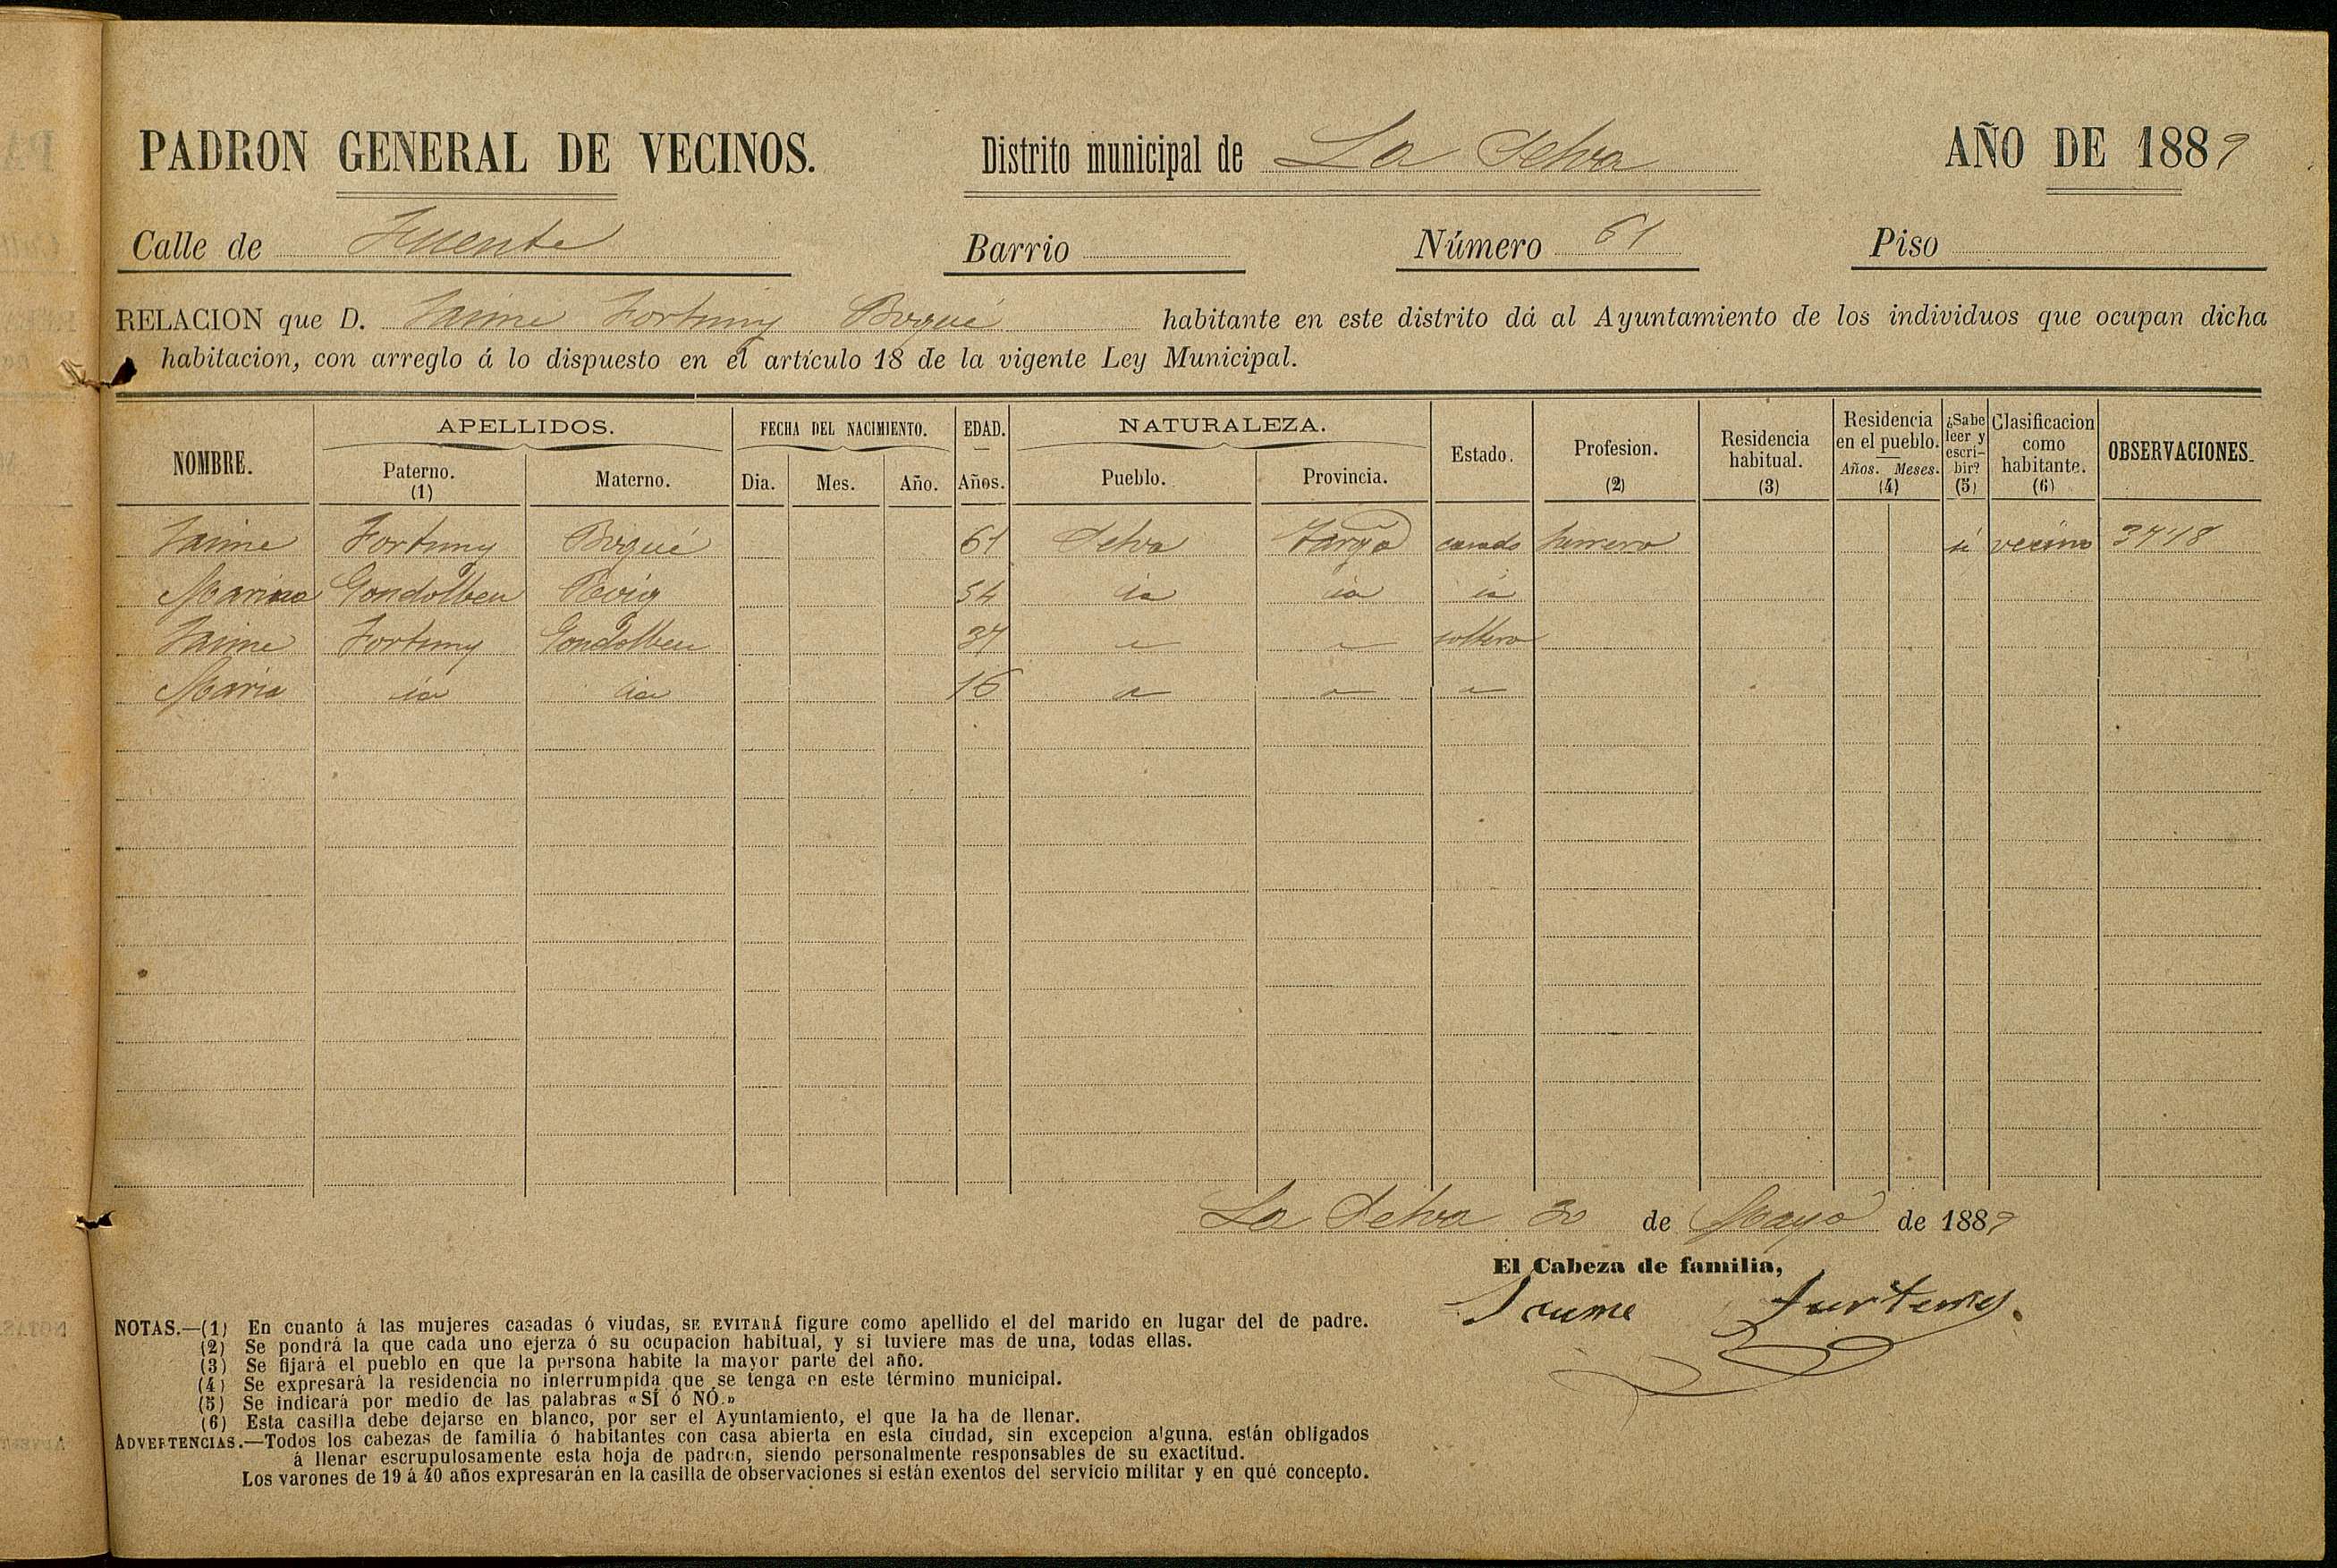 PADRON GENERAL DE VECINOS. Distrito municipal de La Selva AÑO DE 1889
Calle de Fuente Barrio Número 61 Piso
RELACION que D. Jaime Fortuny Bogué habitante en este distrito dá al Ayuntamiento de los individuos que ocupan dicha
habitacion, con arreglo á lo dispuesto en el artículo 18 de la vigente Ley Municipal.
NOMBRE. APELLIDOS. Paterno. (1) Materno. FECHA DEL NACIMIENTO. Dia. Mes. Año. EDAD. Años. NATURALEZA. Pueblo. Provincia. Estado. Profesion. (2) Residencia habitual. (3) Residencia en el pueblo. Años. Meses. (4) ¿Sabe leer y escribir? (5) Clasificacion como habitante. (6) OBSERVACIONES.
Jaime Fortuny Bogué 61 Selva Targª casado herrero si vecino 3718
Mariaa Gondolbeu Puig 54 id id id
Jaime Fortuny Gondolbeu 37 " " soltero
Maria id id 16 " " "
La Selva 30 de Mayo de 1889
El Cabeza de familia,
Jaume Furtuny.
NOTAS.—(1) En cuanto á las mujeres casadas ó viudas, SE EVITARÁ figure como apellido el del marido en lugar del de padre.
(2) Se pondrá la que cada uno ejerza ó su ocupacion habitual, y si tuviere mas de una, todas ellas.
(3) Se fijará el pueblo en que la persona habite la mayor parte del año.
(4) Se expresará la residencia no interrumpida que se tenga en este término municipal.
(5) Se indicará por medio de las palabras «SÍ ó NÓ.»
(6) Esta casilla debe dejarse en blanco, por ser el Ayuntamiento, el que la ha de llenar.
ADVERTENCIAS.—Todos los cabezas de familia ó habitantes con casa abierta en esta ciudad, sin excepcion alguna, están obligados
á llenar escrupulosamente esta hoja de padron, siendo personalmente responsables de su exactitud.
Los varones de 19 á 40 años expresarán en la casilla de observaciones si están exentos del servicio militar y en qué concepto.